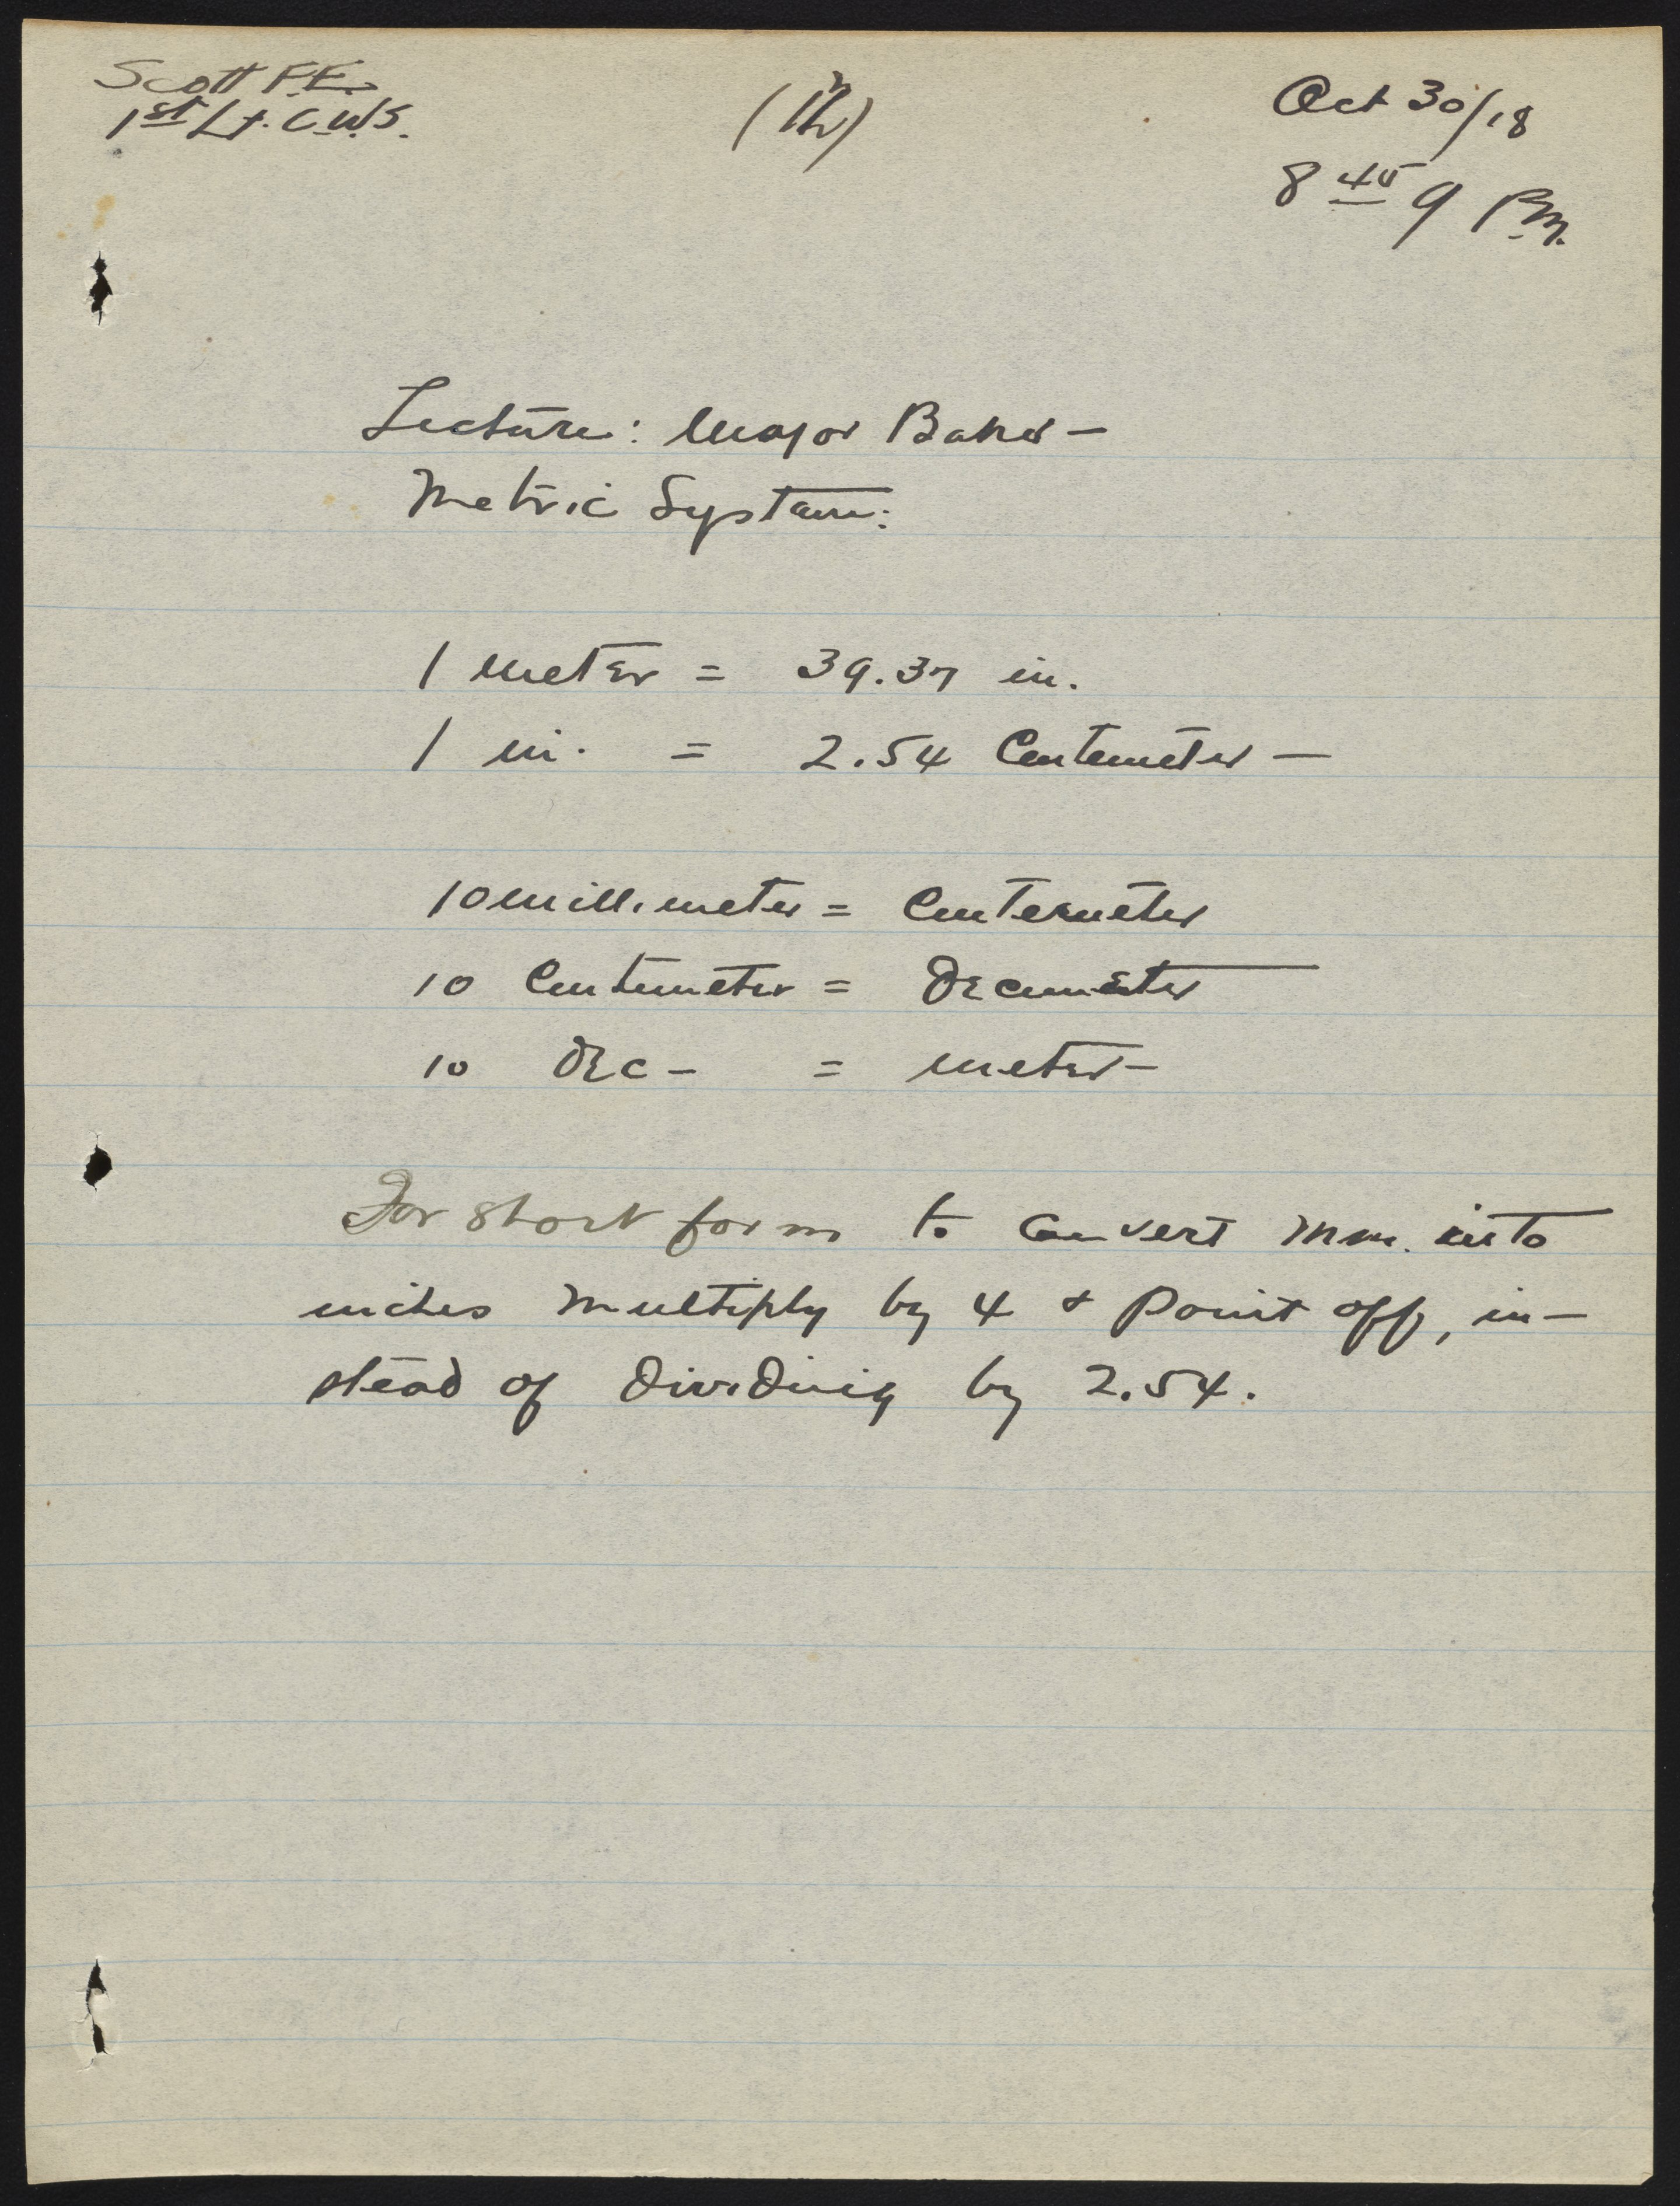 Scott F.E.
1st Lt. C.W.S.
Oct 30/18
8 45 9 P.M.
Lecture: Major Baker —
Metric System:
1 meter = 39.37 in.
1 in. = 2.54 Centemeter —
10 millimeter = Centemeter
10 Centemeter = Decemeter
10 Dec - = meter -
For short form to convert mm. into
inches multiply by 4 & point off, in-
stead of dividing by 2.54.